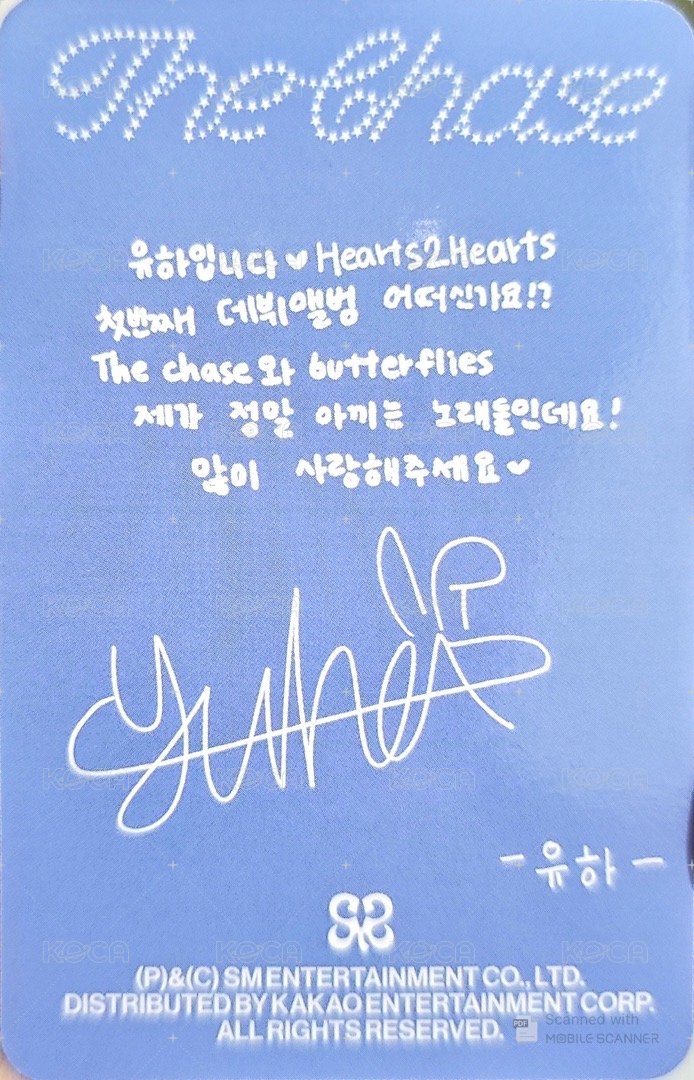 The Chase
유하입니다 ♥ Hearts2Hearts
첫번째 데뷔앨범 어떠신가요!?
The chase 와 butterflies
제가 정말 아끼는 노래들인데요!
많이 사랑해주세요 ♥
yuha
- 유하 -
(P)&(C) SM ENTERTAINMENT CO., LTD.
DISTRIBUTED BY KAKAO ENTERTAINMENT CORP.
ALL RIGHTS RESERVED.
PDF Scanned with
MOBILE SCANNER
KOCA